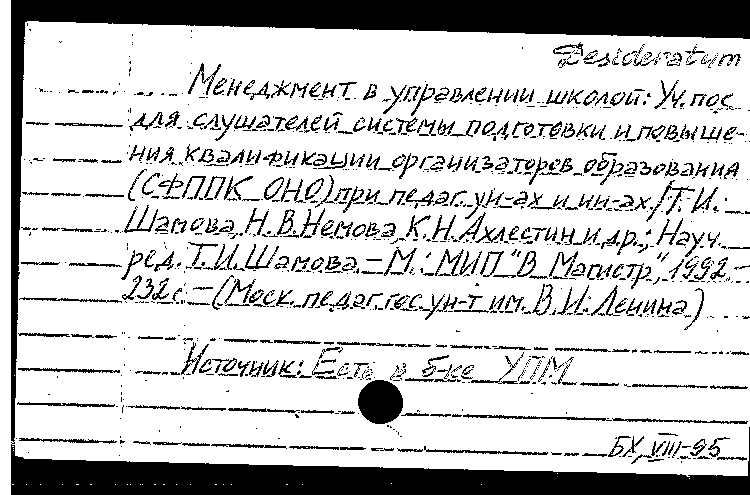 Desideratum
Менеджмент в управлении школой: Уч. пос
для слушателей системы подготовки и повыше-
ния квалификации организаторов образования
(СФППК ОНО) при педаг. ун-ах и ин-ах./Т.И.
Шамова, Н.В.Немова, К.Н.Ахлестин и др.; Науч.
ред. Т.И.Шамова.— М.: МИП "В Магистр", 1992.—
232с.— (Моск. педаг. гос. ун-т им. В.И. Ленина)
Источник: Есть в б-ке УПМ
БХ, VIII-95